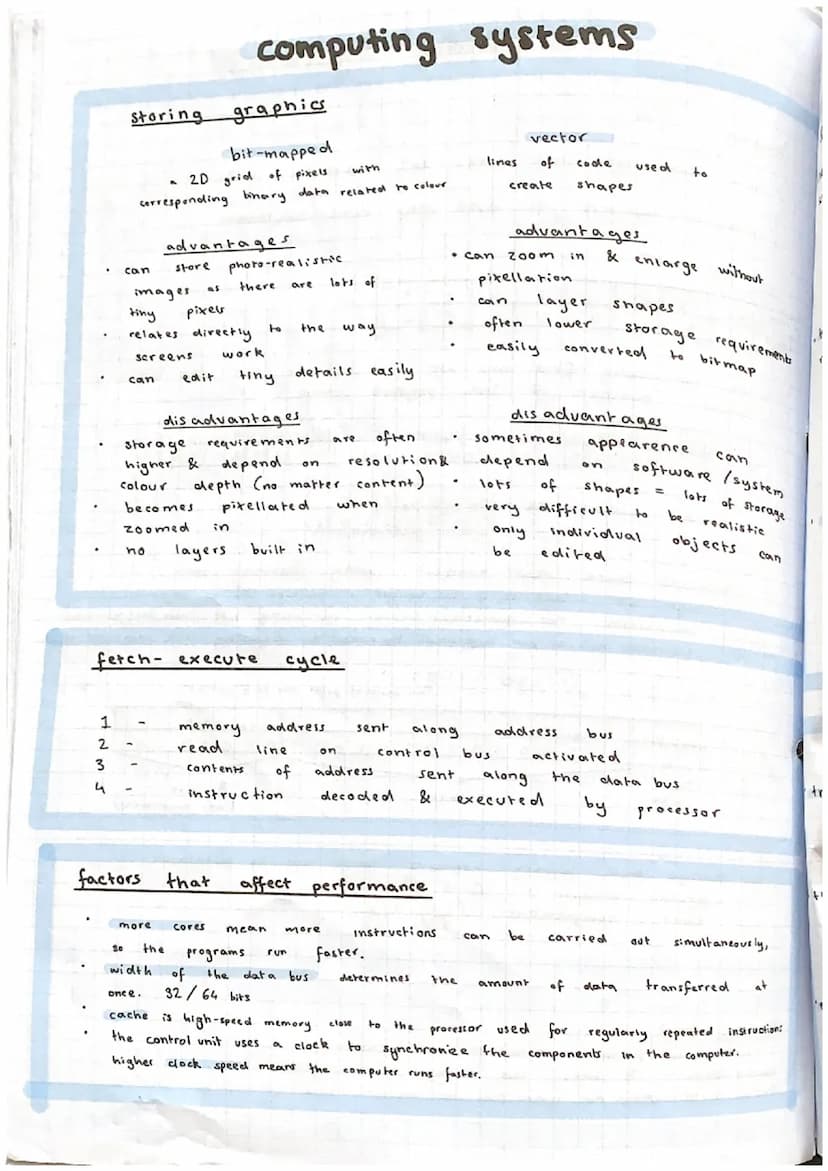 computing systems
storing graphics
bit-mapped
- 2D grid of pixels with
corresponding binary data related to colour
advantages
• can store photo-realistic
images as there are lots of
tiny pixels
• relates directly to the way
screens work
• can edit tiny details easily
disadvantages
• storage requirements are often
higher & depend on resolution &
colour depth (no matter content)
• becomes pixellated when
zoomed in
• no layers built in
vector
lines of code used to
create shapes
advantages
• can zoom in & enlarge without
pixellation
• can layer shapes
• often lower storage requirements
• easily converted to bitmap
disadvantages
• sometimes appearence can
depend on software/system
• lots of shapes = lots of storage
• very difficult to be realistic
• only individual objects can
be edited
fetch-execute cycle
1 - memory address sent along address bus
2 - read line on control bus activated
3 - contents of address sent along the data bus
4 - instruction decoded & executed by processor
factors that affect performance
• more cores mean more instructions can be carried out simultaneously,
so the programs run faster.
• width of the data bus determines the amount of data transferred at
once. 32/64 bits
• cache is high-speed memory close to the processor used for regularly repeated instructions
• the control unit uses a clock to synchronise the components in the computer.
higher clock speed means the computer runs faster.